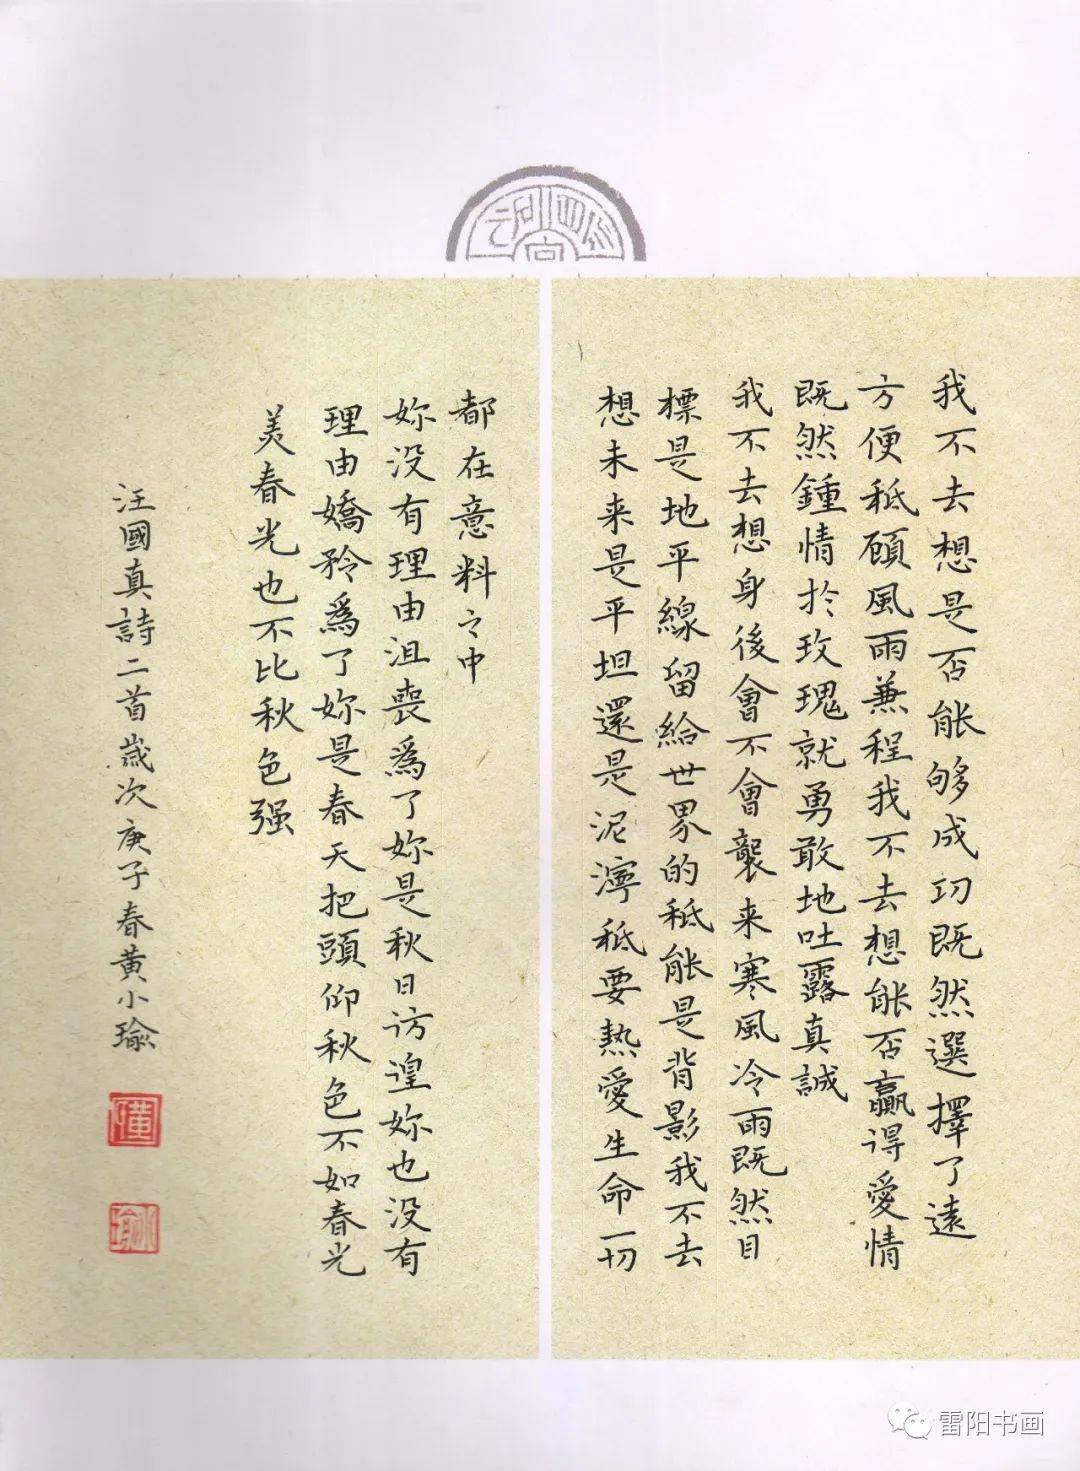 我不去想是否能够成功既然選擇了遠
方便秪顧風雨兼程我不去想能否贏得愛情
既然鍾情於玫瑰就勇敢地吐露真誠
我不去想身後會不會襲来寒風冷雨既然目
標是地平線留給世界的秪能是背影我不去
想未来是平坦還是泥濘秪要热愛生命一切
都在意料之中
妳没有理由沮喪為了妳是秋日访遑妳也没有
理由嬌矜為了妳是春天把頭仰秋色不如春光
美春光也不比秋色强
汪國真詩二首歲次庚子春黄小瑜
雷阳书画